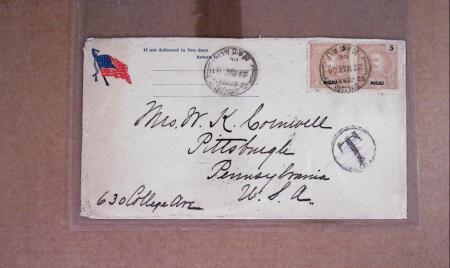 If not delivered in Ten days
Return
5
5
MACAU
MACAU
Mrs. W. K. Cornwell
Pittsburgh
Pennsylvania
U. S. A.
630 College Ave
T